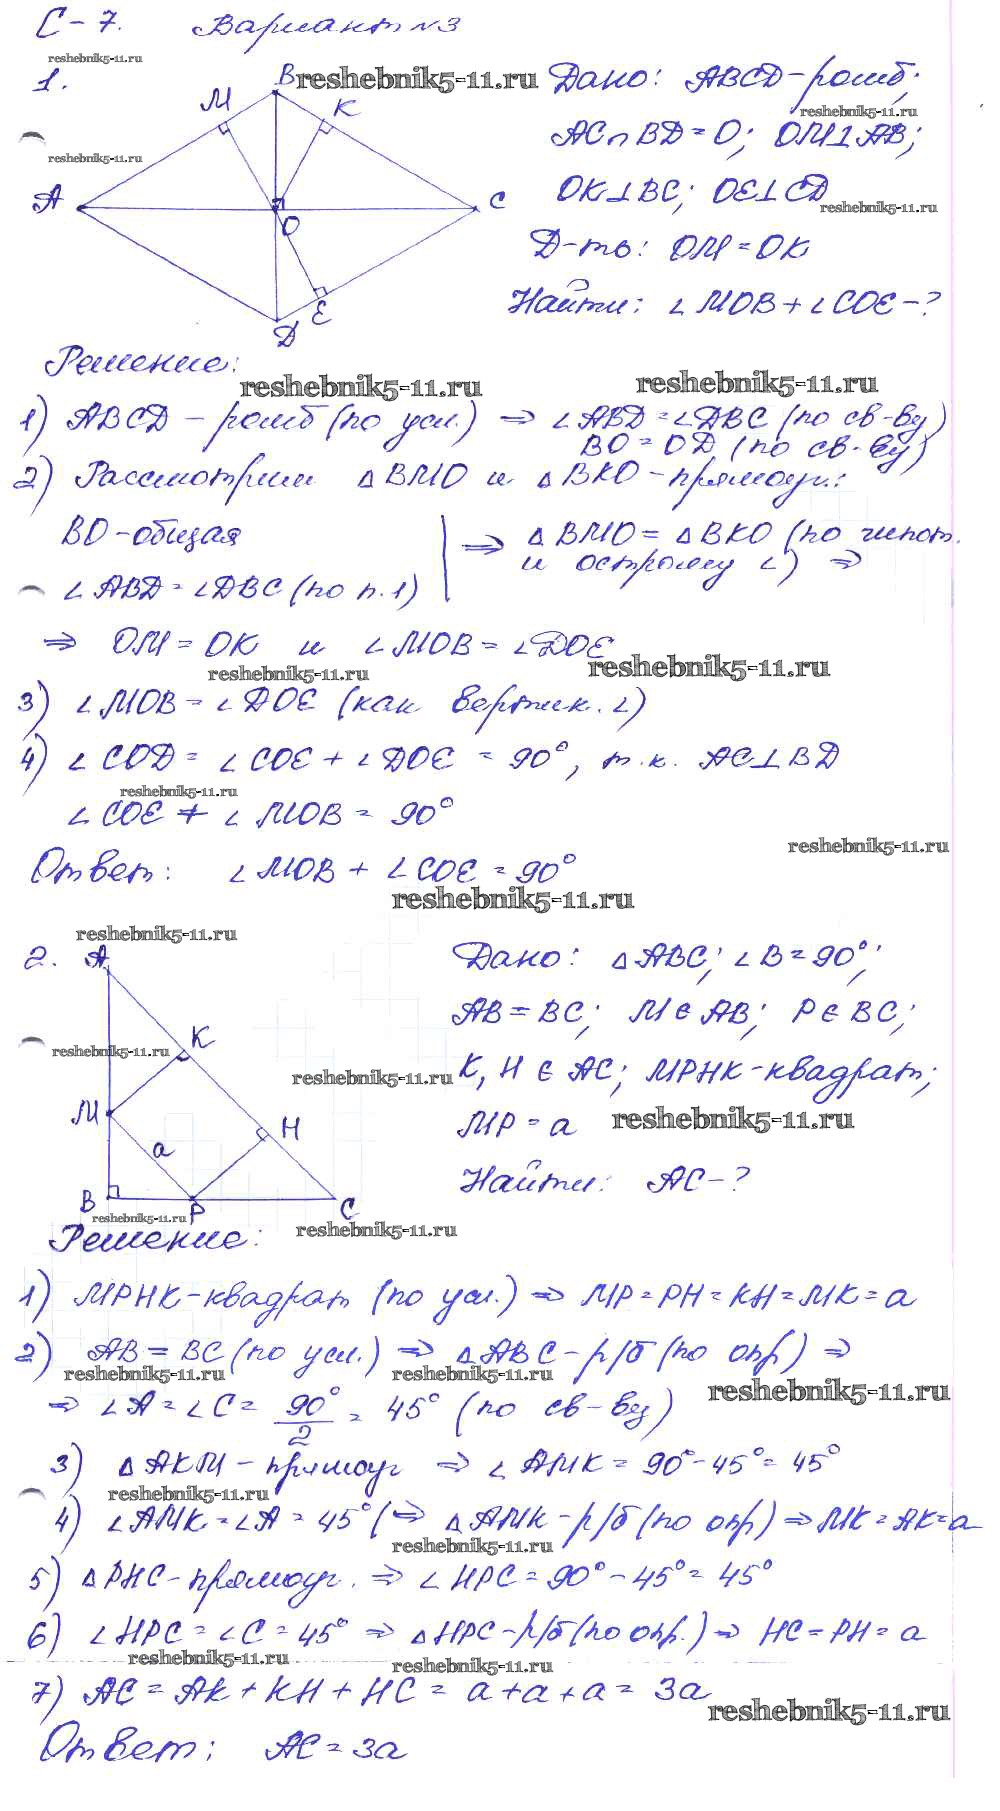 С-7. Вариант №3
reshebnik5-11.ru
1.
B
reshebnik5-11.ru
M
K
A
C
O
E
D
Дано: ABCD-ромб;
reshebnik5-11.ru
reshebnik5-11.ru
AC∩BD=O; OM⊥AB;
OK⊥BC; OE⊥CD
reshebnik5-11.ru
Д-ть: OM=OK
Найти: ∠MOB+∠COE-?
Решение:
reshebnik5-11.ru
reshebnik5-11.ru
1) ABCD-ромб (по усл.) ⇒ ∠ABD=∠DBC (по св-ву)
BO=OD (по св-ву)
2) Рассмотрим △BMO и △BKO-прямоуг.:
BO-общая
∠ABD=∠DBC (по п.1)
⇒ △BMO=△BKO (по гипот.
и острому ∠) ⇒
⇒ OM=OK и ∠MOB=∠DOE
reshebnik5-11.ru
reshebnik5-11.ru
3) ∠MOB=∠DOE (как вертик. ∠)
4) ∠COD=∠COE+∠DOE=90°, т.к. AC⊥BD
reshebnik5-11.ru
∠COE+∠MOB=90°
reshebnik5-11.ru
Ответ: ∠MOB+∠COE=90°
reshebnik5-11.ru
reshebnik5-11.ru
2.
A
K
reshebnik5-11.ru
reshebnik5-11.ru
M
a
H
B
P
C
reshebnik5-11.ru
reshebnik5-11.ru
Дано: △ABC; ∠B=90°;
AB=BC; M∈AB; P∈BC;
K, H∈AC; MPHK-квадрат;
reshebnik5-11.ru
MP=a
Найти: AC-?
Решение:
1) MPHK-квадрат (по усл.) ⇒ MP=PH=KH=MK=a
2) AB=BC (по усл.) ⇒ △ABC-р/б (по опр) ⇒
reshebnik5-11.ru
reshebnik5-11.ru
reshebnik5-11.ru
⇒ ∠A=∠C=90°/2=45° (по св-ву)
3) △AKM-прямоуг ⇒ ∠AMK=90°-45°=45°
reshebnik5-11.ru
4) ∠AMK=∠A=45° (⇒ △AMK-р/б (по опр) ⇒ MK=AK=a
reshebnik5-11.ru
5) △PHC-прямоуг. ⇒ ∠HPC=90°-45°=45°
6) ∠HPC=∠C=45° ⇒ △HPC-р/б (по опр.) ⇒ HC=PH=a
reshebnik5-11.ru
reshebnik5-11.ru
7) AC=AK+KH+HC=a+a+a=3a
reshebnik5-11.ru
Ответ: AC=3a